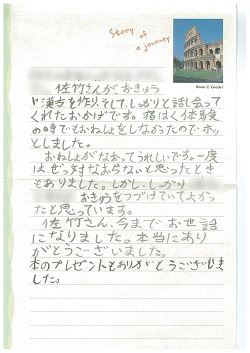 Story of a journey
Rome
佐竹さんがおきゅう
や漢方を作り、そして、しっかりと話し合って
くれたおかげです。宿はく体験
の時でもおねしょをしなかったのでホッ
としました。
おねしょがなおってうれしいです。一度
はぜったいなおらないと思ったとき
もありました。しかし、しっかり
おきゅうをつづけていてよかっ
たと思っています。
佐竹さん、今までお世話
になりました。本当にあり
がとうございました。
本のプレゼントもありがとうございま
した。